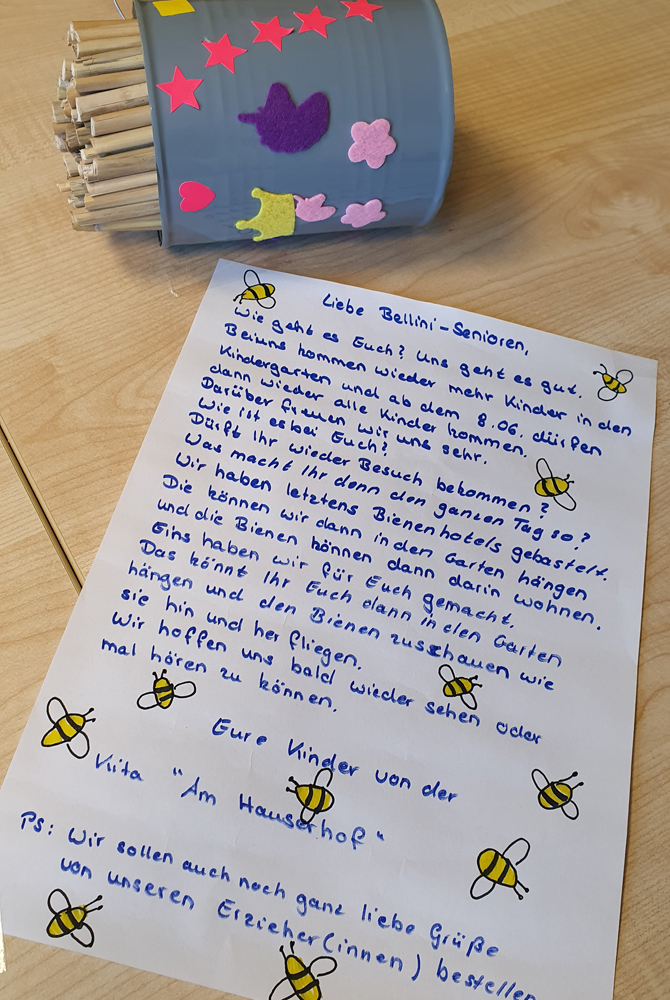 Liebe Bellini-Senioren,
Wie geht es Euch? Uns geht es gut.
Bei uns kommen wieder mehr Kinder in den
Kindergarten und ab dem 8.06. dürfen
dann wieder alle Kinder kommen.
Darüber freuen wir uns sehr.
Wie ist es bei Euch?
Dürft Ihr wieder Besuch bekommen?
Was macht Ihr denn den ganzen Tag so?
Wir haben letztens Bienenhotels gebastelt.
Die können wir dann in den Garten hängen
und die Bienen können dann darin wohnen.
Eins haben wir für Euch gemacht.
Das könnt Ihr Euch dann in den Garten
hängen und den Bienen zuschauen wie
sie hin und her fliegen.
Wir hoffen uns bald wieder sehen oder
mal hören zu können.
Eure Kinder von der
Kita "Am Hauserhof"
PS: Wir sollen auch noch ganz liebe Grüße
von unseren Erzieher(innen) bestellen